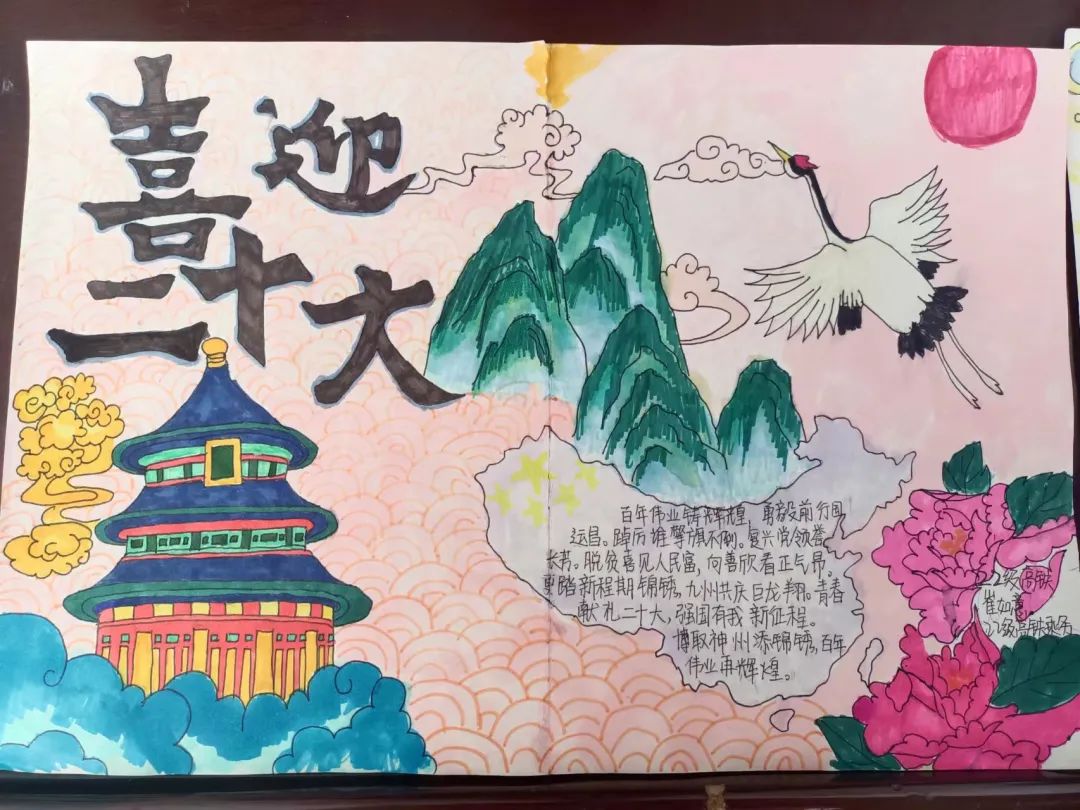 喜迎
二十大
百年伟业铸辉煌,勇毅前行国
运昌。踔厉雄擎旗不倒。复兴党领誉
长芳。脱贫喜见人民富,向善欣看正气昂。
更踏新程期锦锈,九州共庆巨龙翔。青春
献礼二十大,强国有我新征程。
博取神州添锦锈,百年
伟业再辉煌。
级高铁
崔如意
级高铁乘务